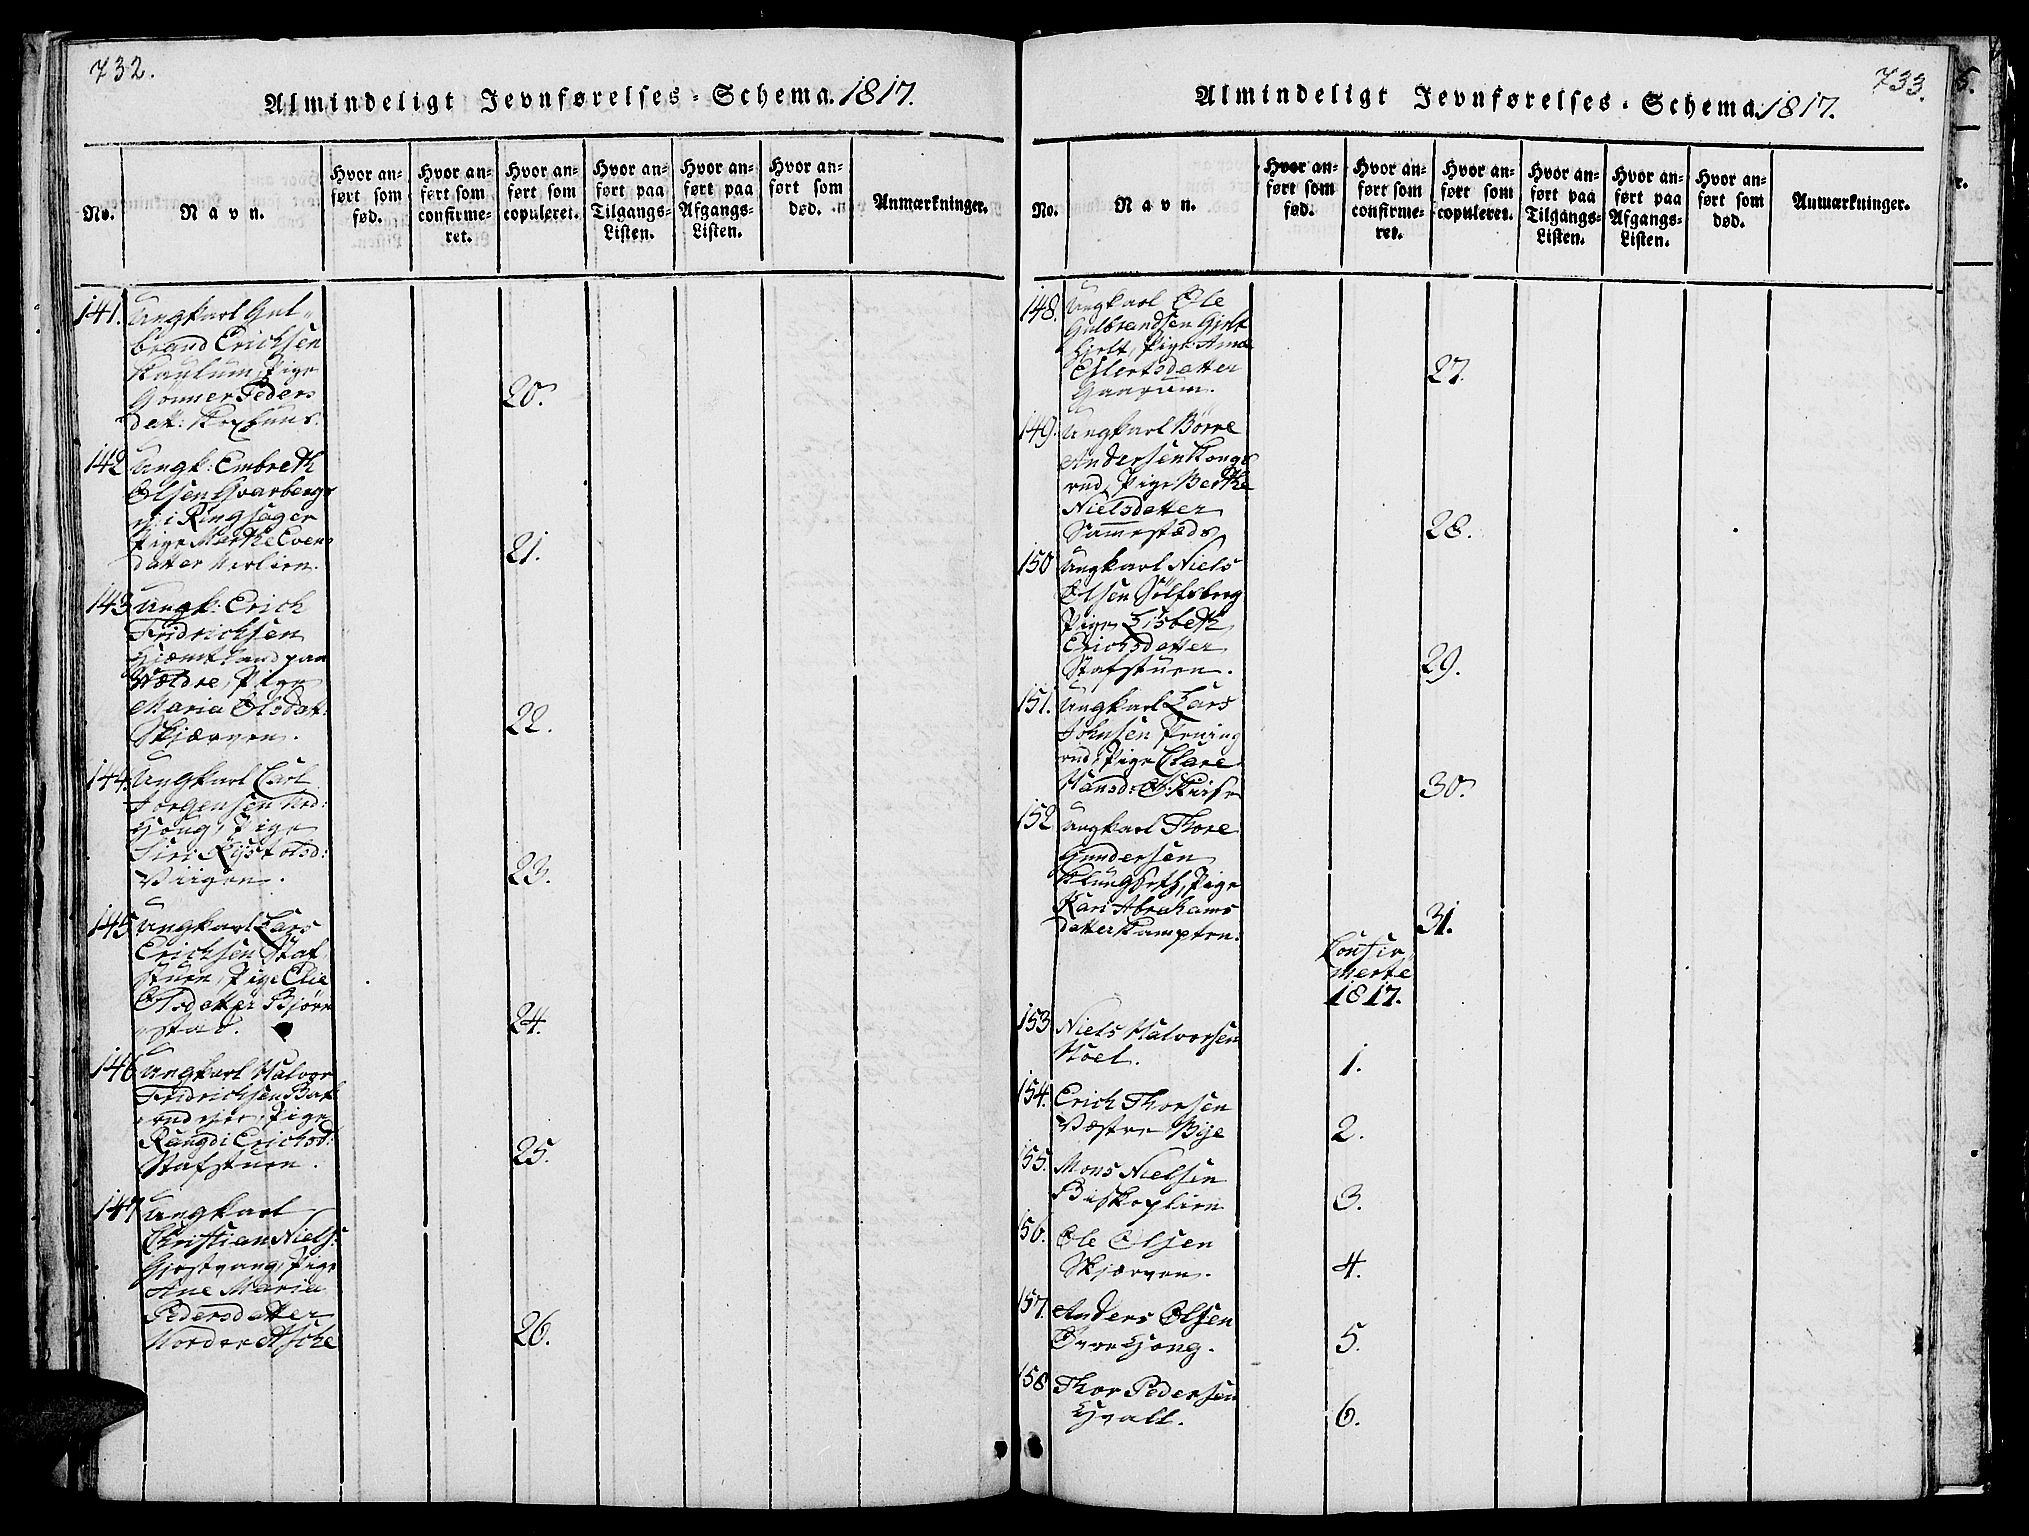 732.
Almindeligt Jevnførelses-Schema. 1817.
No.
Navn.
Hvor anført som fød.
Hvor anført som confirmeret.
Hvor anført som copuleret.
Hvor anført paa Tilgangs-Listen.
Hvor anført paa Afgangs-Listen.
Hvor anført som død.
Anmærkninger.
141. Ungkarl Gul-
brand Erichsen
Kaulum, Pige
Gonner Peders
dat: Kophuus. 20.
142 Ungk: Embreth
Olsen Gvarberg
i Ringsager
Pige Marthe Evens
datter Herlien. 21.
143 Ungk: Erich
Fridrichsen
paa
Pige
Maria Olsdat:
Skjærven. 22.
144. Ungkarl Carl
Jörgensen Ned:
Hong, Pige
Siri
Viigen. 23.
145 Ungkarl Lars
Erichsen Staf
stuen, Pige Elie
Olsdatter Björn
stad. 24.
146 Ungkarl Halvor
Fridrichsen
Pige
Rangdi Erichsd:
Stafstuen. 25.
147 Ungkarl
Christian Niels:
Gjestvang, Pige
Ane Maria
Pedersdatter
Nordre Asche 26.
733.
Almindeligt Jevnførelses-Schema. 1817.
No.
Navn.
Hvor anført som fød.
Hvor anført som confirmeret.
Hvor anført som copuleret.
Hvor anført paa Tilgangs-Listen.
Hvor anført paa Afgangs-Listen.
Hvor anført som død.
Anmærkninger.
148. Ungkarl Ole
Gulbrandsen
Pige Anne
Eilertsdatter
Gaarum. 27.
149. Ungkarl Börre
Andersen Kongs
rud, Pige Berthe
Nielsdatter
Sammestæds 28.
150 Ungkarl Niels
Olsen Sölfsberg
Pige Lisbeth
Erichsdatter
Stafstuen. 29.
151. Ungkarl Lars
Johnsen
rud, Pige Clare
Hansd: 30.
152 Ungkarl Thore
Gundersen
Klungseth, Pige
Kari Abrahams
datter Kampten. 31.
Confir-
merte
1817.
153 Niels Halvorsen
Hoel. 1.
154. Erich Thorsen
Væstre Bye 2.
155. Mons Nielsen
Biskoplien 3.
156. Ole Olsen
Skjærven. 4.
157. Anders Olsen
Övre Hong. 5.
158 Thor Pedersen
Hvall. 6.